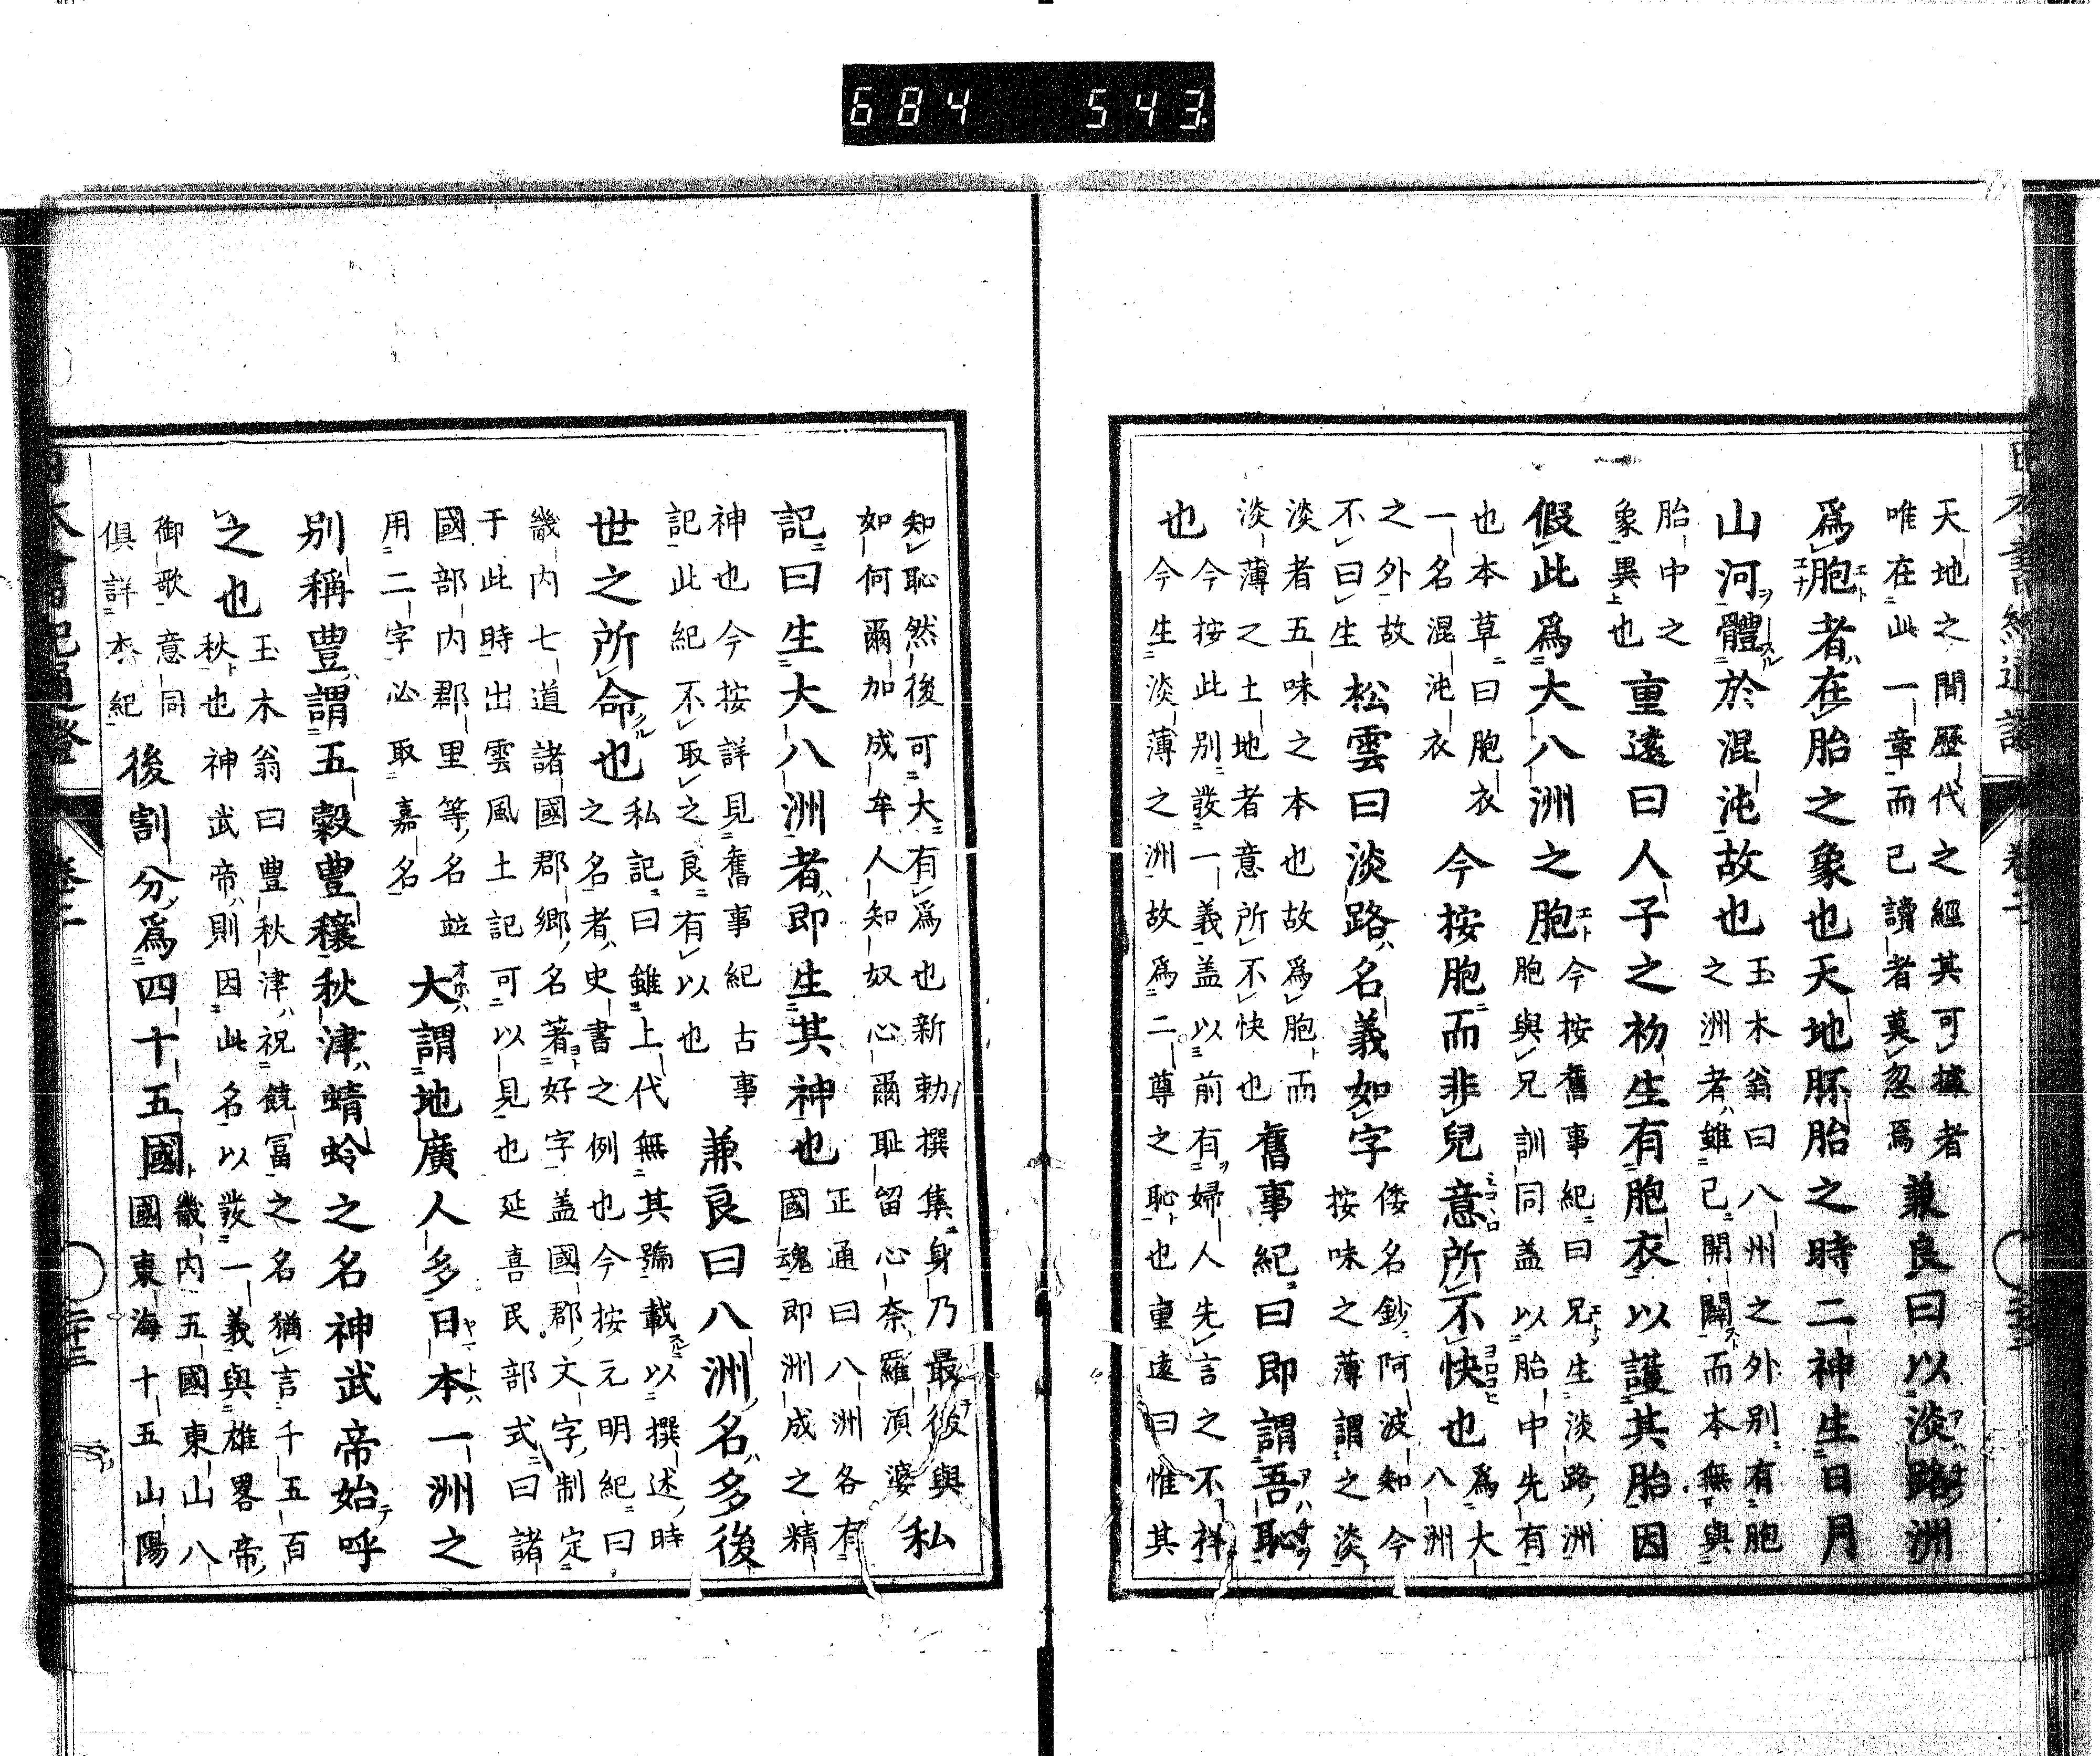 684 543
天地之間歷代之經其可據者
唯在此一章而已讀者莫忽焉
兼良曰以淡路洲
爲胞者在胎之象也天地胚胎之時二神生日月
山河體於混沌故也
玉木翁曰八州之外別有胞
之洲者雖已開闢而本無與
胎中之
象異也
重遠曰人子之初生有胞衣以護其胎因
假此爲大八洲之胞
今按舊事紀曰兄生淡路洲
胞與兄訓同盖以胎中先有
也本草曰胞衣
一名混沌衣
今按胞而非兒意所不快也
爲大
八洲
之外故
不曰生
松雲曰淡路名義如字
倭名鈔阿波知今
按味之薄謂之淡
淡者五味之本也故爲胞而
淡薄之土地者意所不快也
舊事紀曰即謂吾恥
也
今按此別發一義盖以前有婦人先言之不祥
今生淡薄之洲故爲二尊之恥也重遠曰惟其
知恥然後可大有爲也新勅撰集身乃最後與
如何爾加成牟人知奴心爾耻留心奈羅須婆
私
記曰生大八洲者即生其神也
正通曰八洲各有
國魂即洲成之精
神也今按詳見舊事紀古事
記此紀不取之良有以也
兼良曰八洲名多後
世之所命也
私記曰雖上代無其號載以撰述時
之名者史書之例也今按元明紀曰
畿内七道諸國郡鄉名著好字盖國郡文字制定
于此時出雲風土記可以見也延喜民部式曰諸
國部内郡里等名並
用二字必取嘉名
大謂地廣人多日本一洲之
別稱豊謂五穀豊穰秋津蜻蛉之名神武帝始呼
之也
玉木翁曰豊秋津祝饒冨之名猶言千五百
秋也神武帝則因此名以發一義與雄畧帝
御歌意同
俱詳本紀
後割分爲四十五國
畿内五國東山八
國東海十五山陽